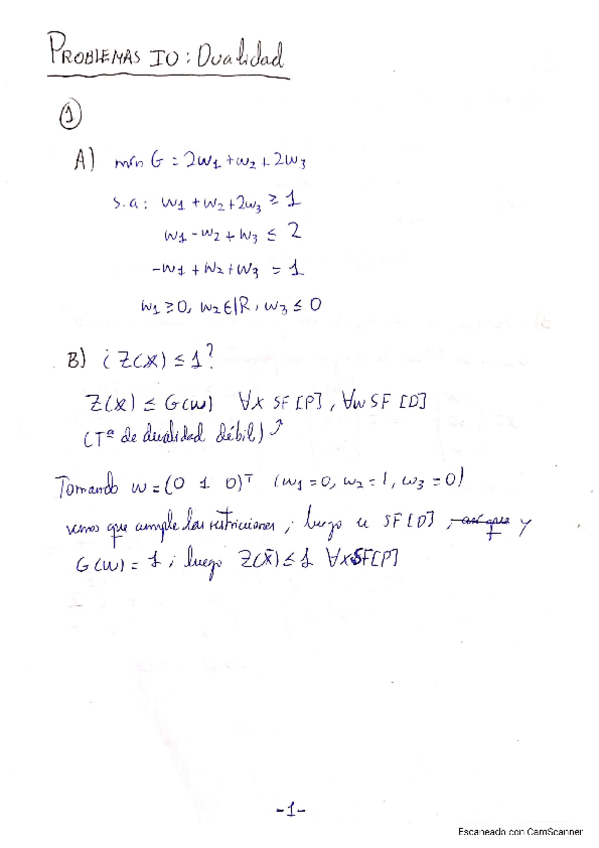 PROBLEMAS IO: Dualidad
1
A) mín G = 2w1 + w2 + 2w3
s.a: w1 + w2 + 2w3 ≥ 1
w1 - w2 + w3 ≤ 2
-w1 + w2 + w3 = 1
w1 ≥ 0, w2 ∈ ℝ, w3 ≤ 0
B) ¿Z(x) ≤ 1?
Z(x) ≤ G(w) ∀x SF[P], ∀w SF[D]
(Tª de dualidad débil) ⤴
Tomando w = (0 1 0)ᵀ (w1 = 0, w2 = 1, w3 = 0)
vemos que cumple las restricciones, luego es SF[D], así que y
G(w) = 1; luego Z(x̄) ≤ 1 ∀x SF[P]
-1-
Escaneado con CamScanner